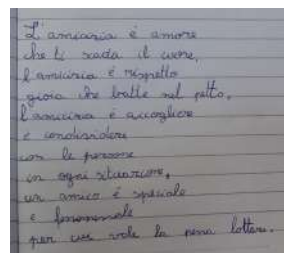 L'amicizia è amore
che ti scada il cuore,
l'amicizia è rispetto
gioia che batte nel petto,
l'amicizia è accogliere
e condividere
con le persone
in ogni situazione,
un amico è speciale
e fenomenale
per cui vale la pena lottare.